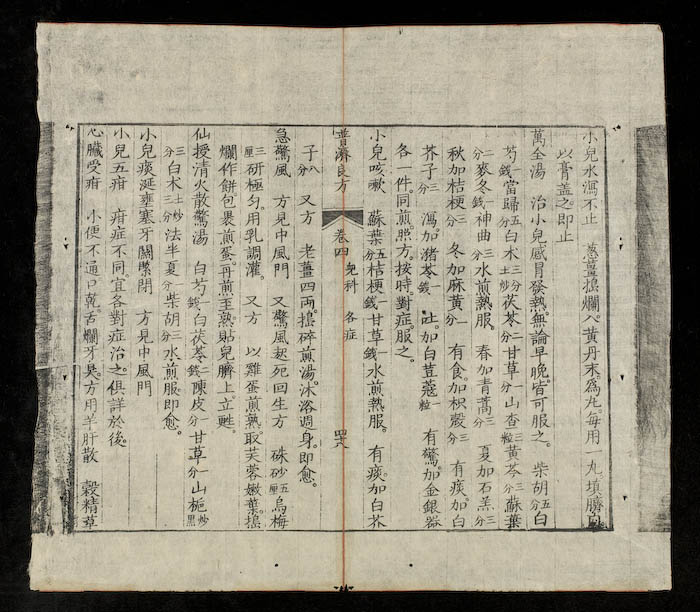 小兒水瀉不止 葱薑搗爛入黃丹末為丸每用一丸填臍
以膏盖之即止
萬全湯 治小兒感冒發熱無論早晚皆可服之 柴胡五分白
芍一錢當歸五分白术三分土炒茯苓二分甘草一分山查三粒黃芩三分蘇葉
一分麥冬一錢神曲三分水煎熱服 春加青蒿三分 夏加石羔三分
秋加桔梗三分 冬加麻黃一分 有食加枳殼三分 有痰加白
芥子三分 瀉加猪苓一錢 吐加白荳蔻一粒 有驚加金銀器
各一件同煎照方按時對症服之
小兒咳嗽 蘇葉五分桔梗一錢甘草一錢水煎熱服 有痰加白芥
普濟良方 卷四 兒科 各症 四八
子八分 又方 老薑四兩搗碎煎湯沐浴週身即愈
急驚風 方見中風門 又驚風起死回生方 硃砂五厘烏梅
三厘研極勻用乳調灌 又方 以雞蛋煎熟取芙蓉嫩葉搗
爛作餅包裹煎蛋再煎至熟貼兒臍上立甦
仙授清火散驚湯 白芍一錢白茯苓二錢陳皮一分甘草一分山梔炒黑
三分白术土炒三分法半夏一分柴胡三分水煎服即愈
小兒痰涎壅塞牙關緊閉 方見中風門
小兒五疳 疳症不同宜各對症治之俱詳於後
心臟受疳 小便不通口乾舌爛牙臭方用羊肝散 穀精草